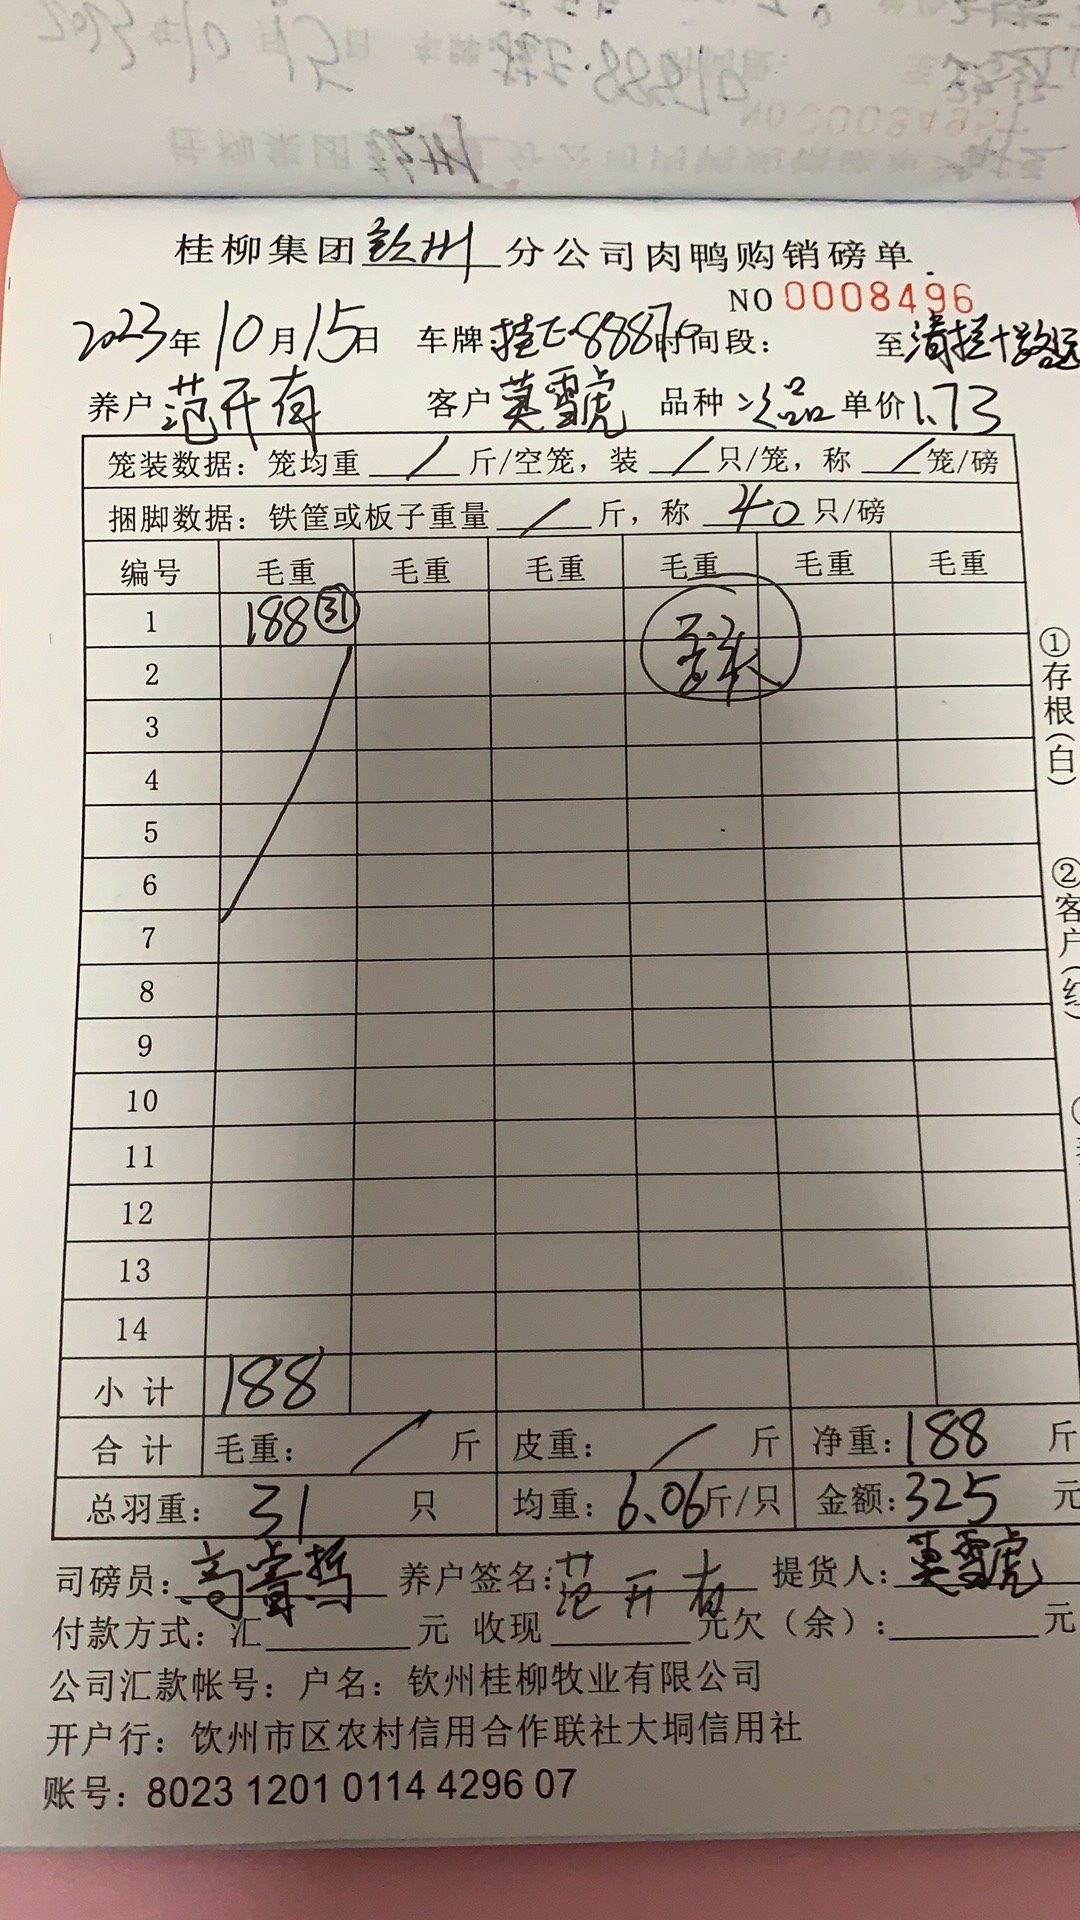 桂柳集团钦州分公司肉鸭购销磅单
NO 0008496
2023年10月15日 车牌:桂 时间段: 至
养户范开有 客户莫雪虎 品种次品 单价1.73
笼装数据:笼均重 / 斤/空笼,装 / 只/笼,称 / 笼/磅
捆脚数据:铁筐或板子重量 / 斤,称 40 只/磅
编号 毛重 毛重 毛重 毛重 毛重 毛重
1 188 31
2
3
4
5
6
7
8
9
10
11
12
13
14
小计 188
合计 毛重: / 斤 皮重: / 斤 净重:188 斤
总羽重: 31 只 均重:6.06斤/只 金额:325 元
司磅员: 养户签名:范开有 提货人:莫雪虎
付款方式:汇 元 收现 元欠(余): 元
公司汇款帐号:户名:钦州桂柳牧业有限公司
开户行:饮州市区农村信用合作联社大垌信用社
账号:8023 1201 0114 4296 07
①存根(白)
②客户(红)